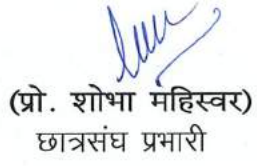 (प्रो. शोभा महिस्वर)
छात्रसंघ प्रभारी